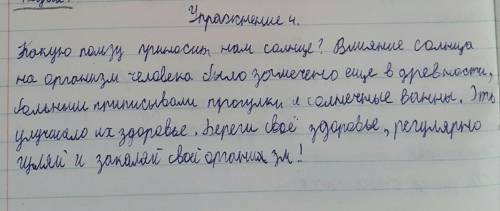 Упражнение 4.
Какую ползу приносит нам солнце? Влияние солнца
на организм человека было замечено еще в древности,
больным приписывали прогулки и солнечные ванны. Эть
улучшало их здоровье. Береги своё здоровье, регулярно
гуляй и закаляй свой организм!